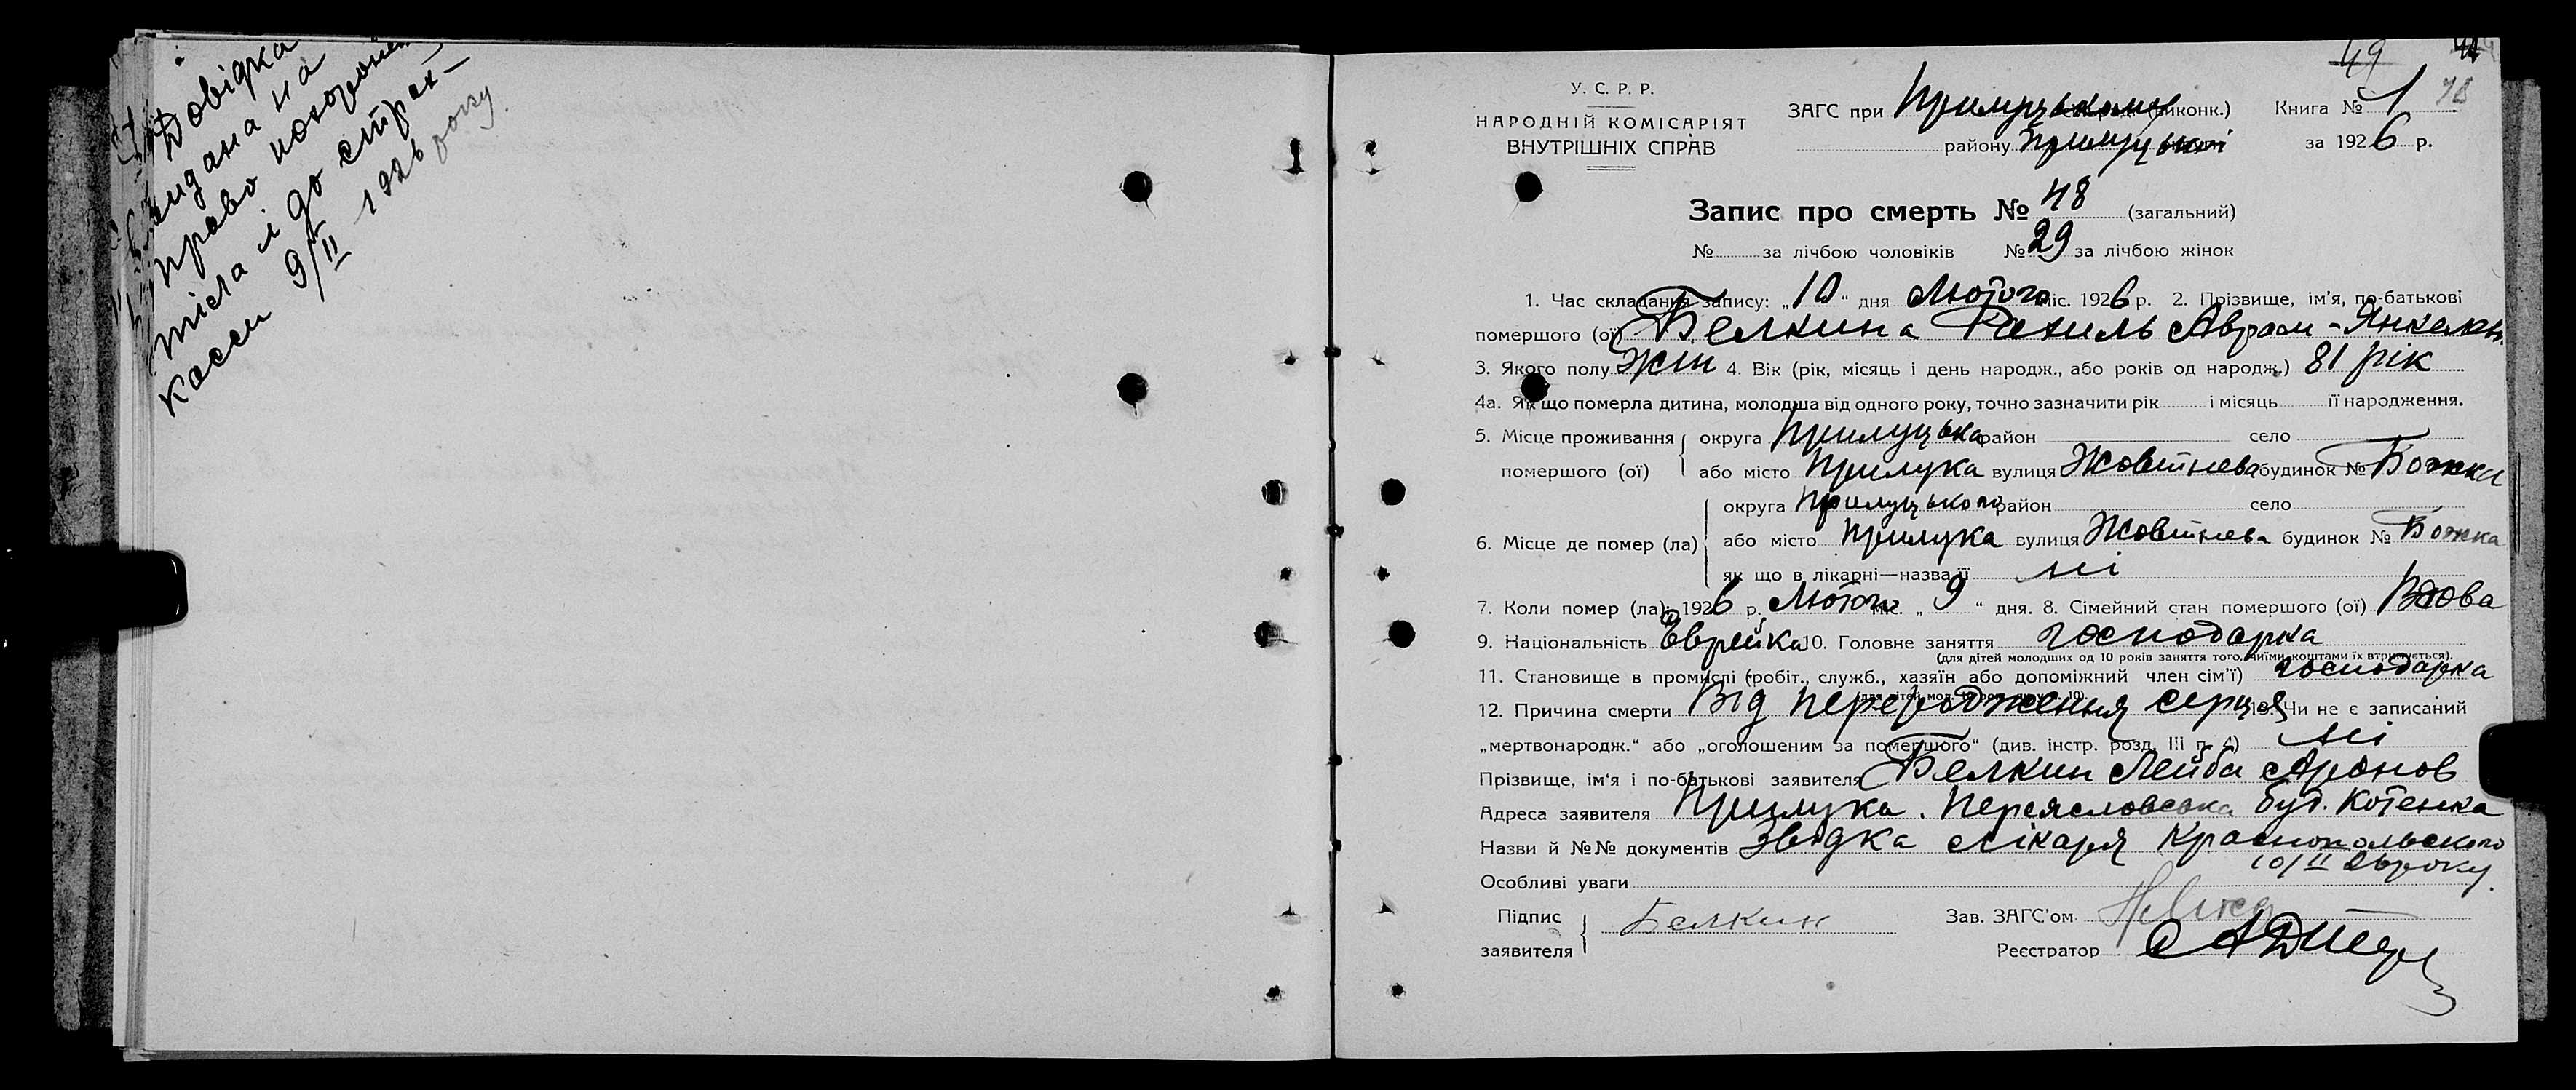 Довідка
видана на
право похорон
тіла і до страх-
касси 9/II 1926 року.
49
78
У. С. Р. Р.
НАРОДНІЙ КОМІСАРІЯТ
ВНУТРІШНІХ СПРАВ
ЗАГС при Прилуцькому (виконк.)
району Прилуцької
Книга № 1
за 1926 р.
Запис про смерть № 48 (загальний)
№ за лічбою чоловіків № 29 за лічбою жінок
1. Час складання запису: „10“ дня Лютого міс. 1926 р. 2. Прізвище, ім'я, по-батькові
помершого (ої) Белкина Рахиль Аврам-Янкелев.
3. Якого полу жін 4. Вік (рік, місяць і день народж., або років од народж.) 81 рік
4а. Як що померла дитина, молодша від одного року, точно зазначити рік і місяць її народження.
5. Місце проживання помершого (ої) округа Прилуцька район село
або місто Прилука вулиця Жовтнева будинок № Божка
6. Місце де помер (ла) округа Прилуцького район село
або місто Прилука вулиця Жовтнева будинок № Божка
як що в лікарні—назва її ні
7. Коли помер (ла): 1926 р. Лютого міс. „9“ дня. 8. Сімейний стан помершого (ої) Вдова
9. Національність Єврейка 10. Головне заняття господарка
(для дітей молодших од 10 років заняття того, чиїми коштами їх втримується).
11. Становище в промислі (робіт., служб., хазяїн або допоміжний член сім'ї) господарка
12. Причина смерти Від переродження серця 13. Чи не є записаний
„мертвонародж.“ або „оголошеним за помершого“ (див. інстр. розд. III п. 4) ні
Прізвище, ім'я і по-батькові заявителя Белкин Лейба Аронов
Адреса заявителя Прилука. Переясловська буд. Котенка
Назви й №№ документів Звідка лікаря Краснопольского
10/II 26 року.
Особливі уваги
Підпис заявителя Белкин
Зав. ЗАГС'ом
Реєстратор